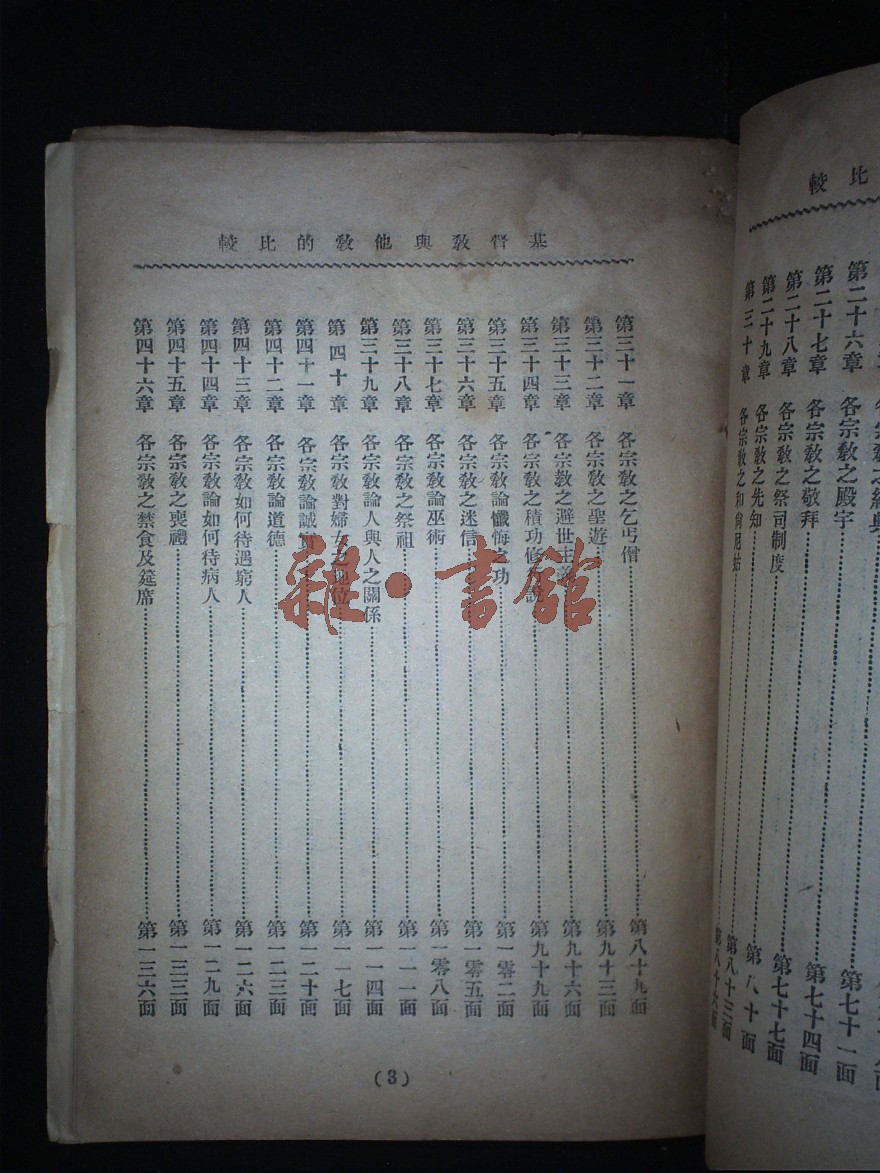 較比
第二十六章 各宗教之殿宇……第七十四面
第二十七章 各宗教之敬拜……第七十七面
第二十八章 各宗教之祭司制度……第八十面
第二十九章 各宗教之先知……第八十三面
第三十章 各宗教之和尚尼姑……第八十六面
基督教與他教的比較
第三十一章 各宗教之乞丐僧……第八十九面
第三十二章 各宗教之聖遊……第九十三面
第三十三章 各宗教之避世主義……第九十六面
第三十四章 各宗教之積功修行說……第九十九面
第三十五章 各宗教論懺悔之功……第一零二面
第三十六章 各宗教之迷信……第一零五面
第三十七章 各宗教論巫術……第一零八面
第三十八章 各宗教之祭祖……第一一一面
第三十九章 各宗教論人與人之關係……第一一四面
第四十章 各宗教對婦女之地位……第一一七面
第四十一章 各宗教論誠實……第一二十面
第四十二章 各宗教論道德……第一二三面
第四十三章 各宗教如何待遇窮人……第一二六面
第四十四章 各宗教論如何待病人……第一二九面
第四十五章 各宗教之喪禮……第一三三面
第四十六章 各宗教之禁食及筵席……第一三六面
(3)
雜·書館